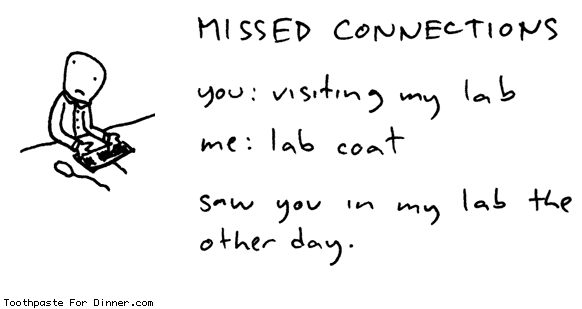 MISSED CONNECTIONS
you: visiting my lab
me: lab coat
saw you in my lab the
other day.
Toothpaste For Dinner.com